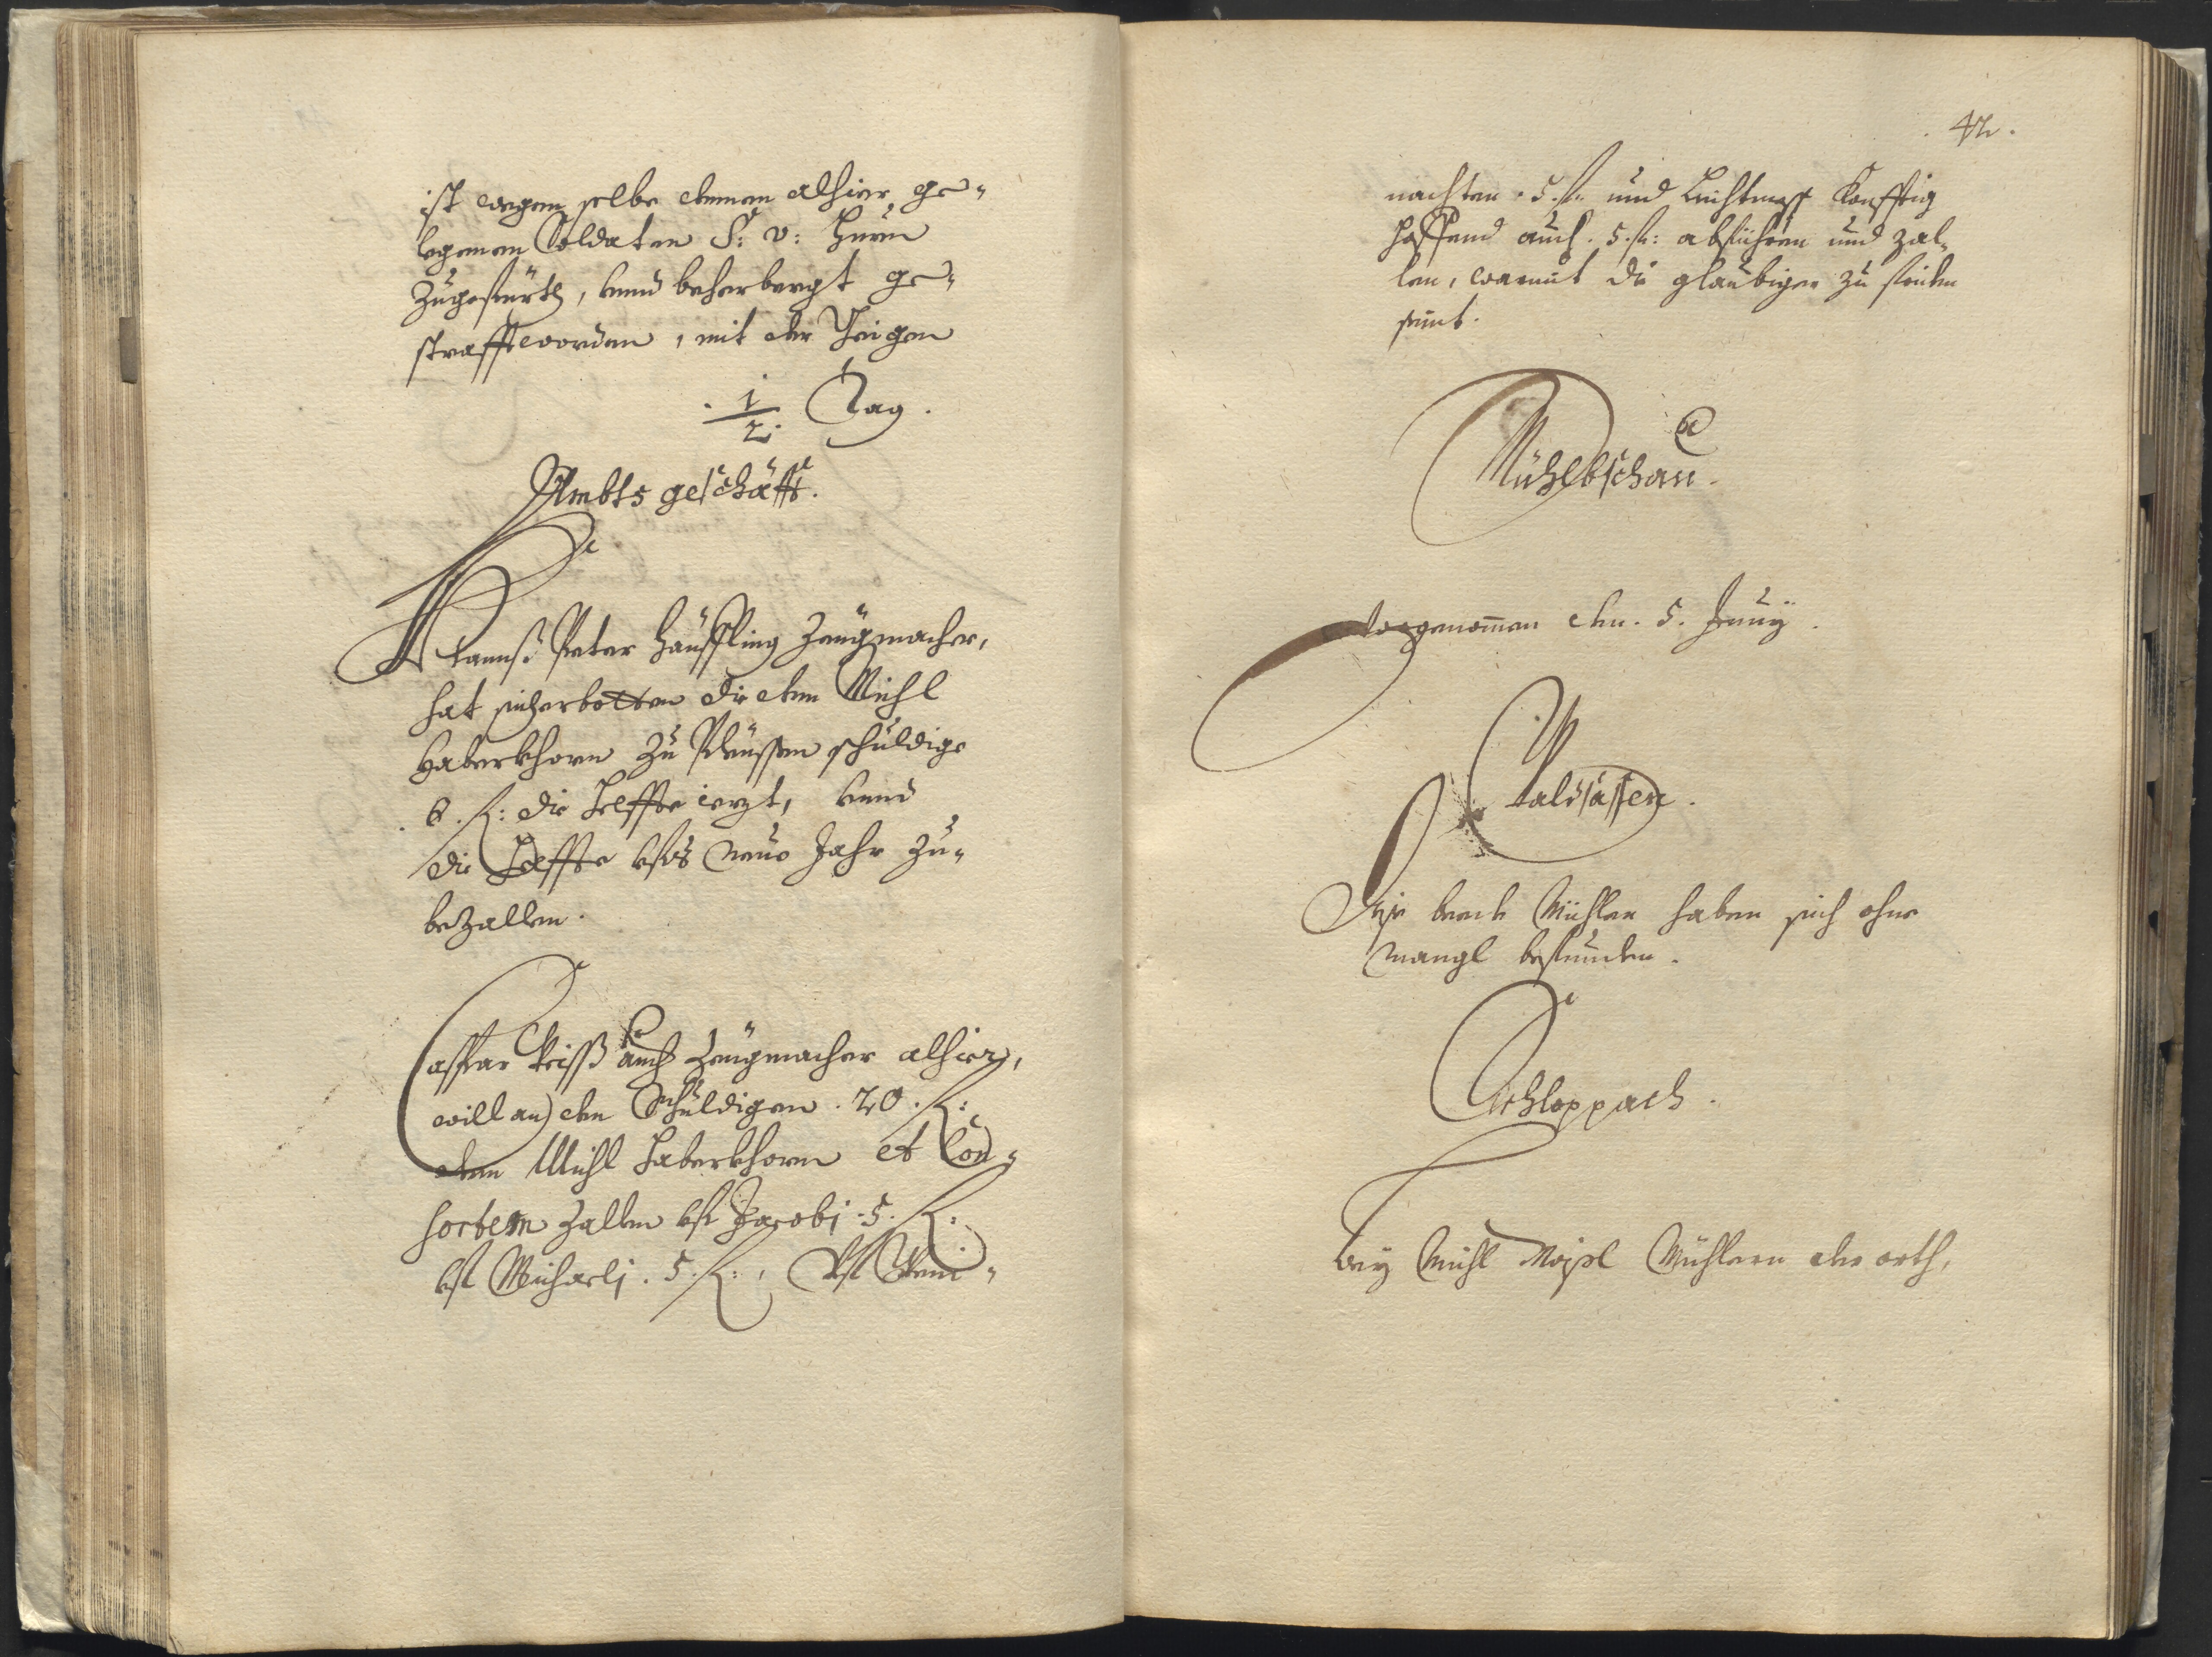 ist wegen selbe denen alhier ge-
legenen Soldaten S: v: Huern
zugefürth, vnnd beherbergt ge-
strafft worden, mit der Geigen
. 1/2. Tag.
Ambts geschäfft.
Hannß Peter Häuffling Zeügmacher,
hat sich erbotten die dem Michl
Haberkhorn zu schuldige
. 6. fl: die Helffte iezt, vnnd
die Helffte vfs neue Jahr zu-
bezallen.
Caspar Weiß auch Zeügmacher alhier,
will an den Schuldigen . 20. fl:
dem Michl Haberkhorn et Con-
sortem zallen vf Jacobj . 5. fl:
vf Michaelj . 5. fl:, vf Wein-
. 42.
nachten . 5. fl: und Liechtmess Konfftig
auch . 5. fl: abführen und zal-
len, warmit die glaubiger zu friden
seint.
Mühlbschau.
Vorgenommen den . 5. Junij.
Waldsassen.
Die beede Mühlen haben sich ohne
mangl befunden.
Schloppach.
Bey Michl Mühlern der orth,